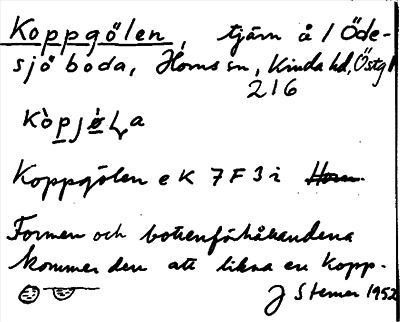 Koppgölen, tjärn å 1 Öde-
sjö boda, Horns sn, Kinda hd, Östg l
216
Koppgölen e K 7 F 3 i Horn
Formen och bottenförhållandena
kommer den att likna en kopp.
J Stemer 1952